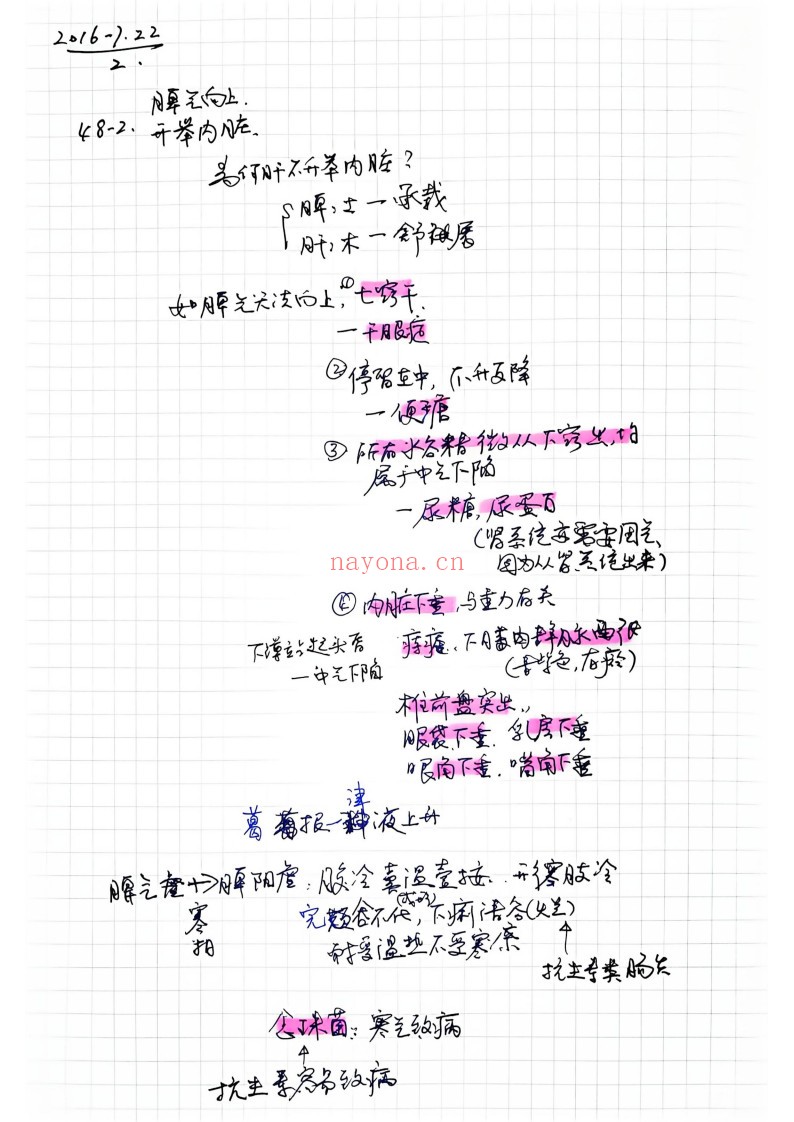 2016-7.22
2.
脾气向上.
48-2. 升举内脏.
为何肝不升举内脏?
脾,土—承载
肝,木—舒展
如脾气无法向上,①七窍干.
—干眼症
②停留在中,不升反降
—便溏
③所有水谷精微从下窍出,均
属于中气下陷
—尿糖,尿蛋白
(肾系统亦需要固气,
因为从肾系统出来)
nayona.cn
④内脏下垂,与重力有关
下蹲站起头昏
—中气下陷
痔疮、下肢静脉曲张
(舌紫色,有瘀)
椎间盘突出,
眼袋下垂.乳房下垂
眼角下垂.嘴角下垂
葛根—津液上升
脾气虚→脾阳虚:腹冷喜温喜按.形寒肢冷
寒
完谷不化,下痢清谷(火足)
耐受温热不受寒凉
抗生素类肠炎
念珠菌:寒气致病
抗生素容易致病